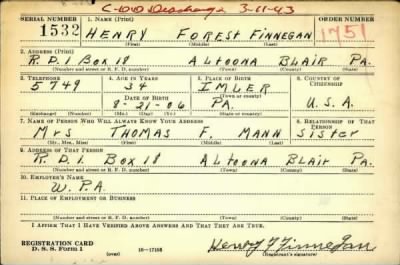 C-DVD Discharge 3-11-43
SERIAL NUMBER 1. Name (Print)
1532 HENRY FOREST FINNEGAN 1751
(First) (Middle) (Last)
2. ADDRESS (Print)
R.D.1 Box 18 ALTOONA BLAIR PA.
(Number and street or R. F. D. number) (Town) (County) (State)
3. TELEPHONE 4. AGE IN YEARS 5. PLACE OF BIRTH 6. COUNTRY OF CITIZENSHIP
5749 34 IMLER
DATE OF BIRTH (Town or county)
8-21-06 PA. U.S.A.
(Exchange) (Number) (Mo.) (Day) (Yr.) (State or country)
7. NAME OF PERSON WHO WILL ALWAYS KNOW YOUR ADDRESS 8. RELATIONSHIP OF THAT PERSON
Mrs THOMAS F. MANN Sister
(Mr., Mrs., Miss) (First) (Middle) (Last)
9. ADDRESS OF THAT PERSON
R.D.1 Box 18 ALTOONA BLAIR PA.
(Number and street or R. F. D. number) (Town) (County) (State)
10. EMPLOYER'S NAME
W.P.A
11. PLACE OF EMPLOYMENT OR BUSINESS
(Number and street or R. F. D. number) (Town) (County) (State)
I AFFIRM THAT I HAVE VERIFIED ABOVE ANSWERS AND THAT THEY ARE TRUE.
REGISTRATION CARD
D. S. S. Form 1 (over) 16-17105 Henry F Finnegan
(Registrant's signature)